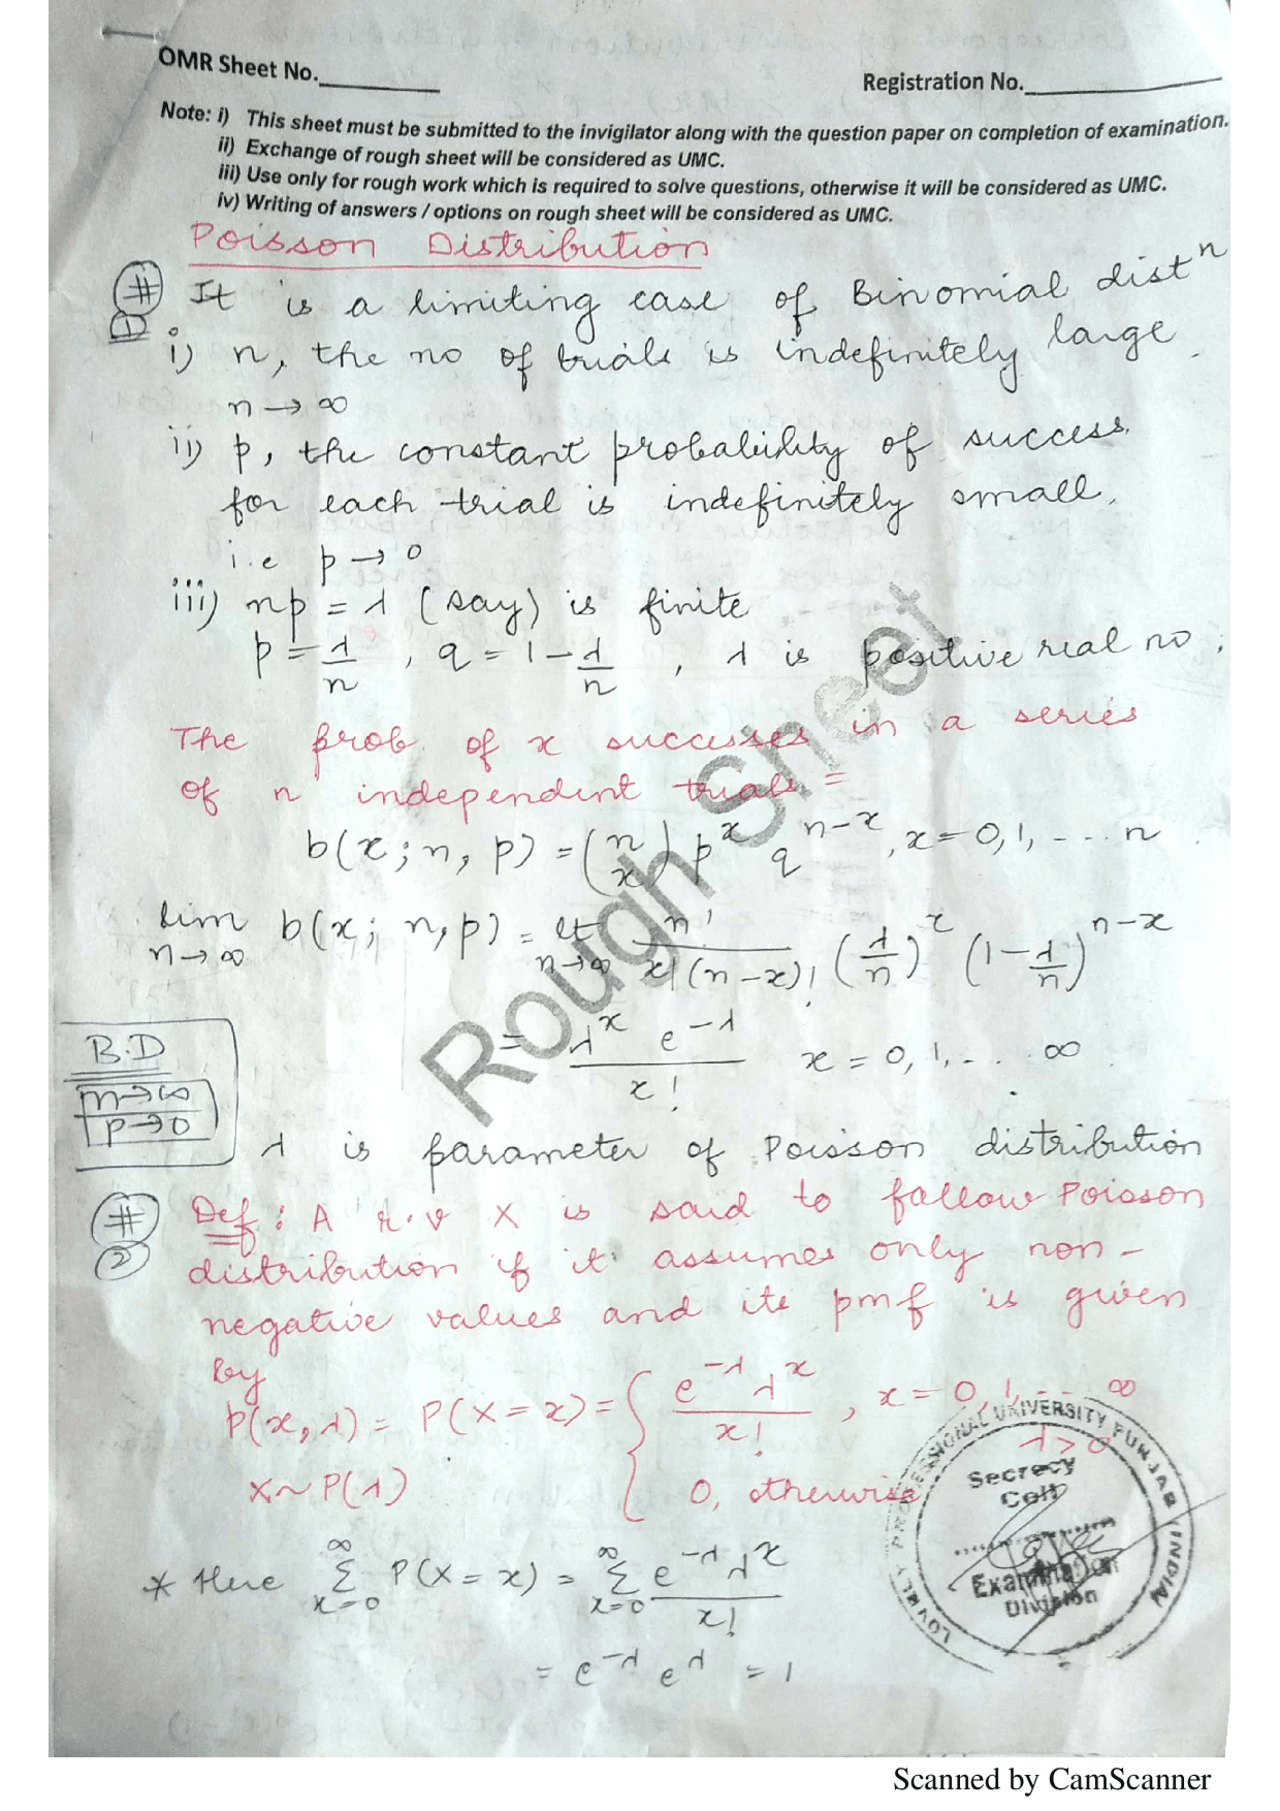 OMR Sheet No.
Registration No.
Note: i) This sheet must be submitted to the invigilator along with the question paper on completion of examination.
ii) Exchange of rough sheet will be considered as UMC.
iii) Use only for rough work which is required to solve questions, otherwise it will be considered as UMC.
iv) Writing of answers / options on rough sheet will be considered as UMC.
Poisson Distribution
# It is a limiting case of Binomial distⁿ
1
i) n, the no of trials is indefinitely large.
n → ∞
ii) p, the constant probability of success.
for each trial is indefinitely small.
i.e p → 0
iii) np = λ (say) is finite
p = λ/n , q = 1 - λ/n , λ is positive real no.
The prob. of x successes in a series
of n independent trials =
b(x; n, p) = (n x) p^x q^(n-x), x = 0, 1, - - - n
lim n→∞ b(x; n, p) = lt n→∞ n!/(x!(n-x)!) (λ/n)^x (1-λ/n)^(n-x)
= λ^x e^(-λ) / x! x = 0, 1, - . . ∞
B.D
n→∞
p→0
λ is parameter of Poisson distribution
# Def: A r.v X is said to follow Poisson
2 distribution if it assumes only non-
negative values and its pmf is given
by
p(x, λ) = P(X = x) = { e^(-λ) λ^x / x! , x = 0, 1, - - - ∞
λ > 0
X ~ P(λ) 0, otherwise
* Here ∞ Σ x=0 P(X = x) = ∞ Σ x=0 e^(-λ) λ^x / x!
= e^(-λ) e^λ = 1
Rough Sheet
LOVELY PROFESSIONAL UNIVERSITY PUNJAB (INDIA)
Secrecy
Cell
Examination
Division
Scanned by CamScanner